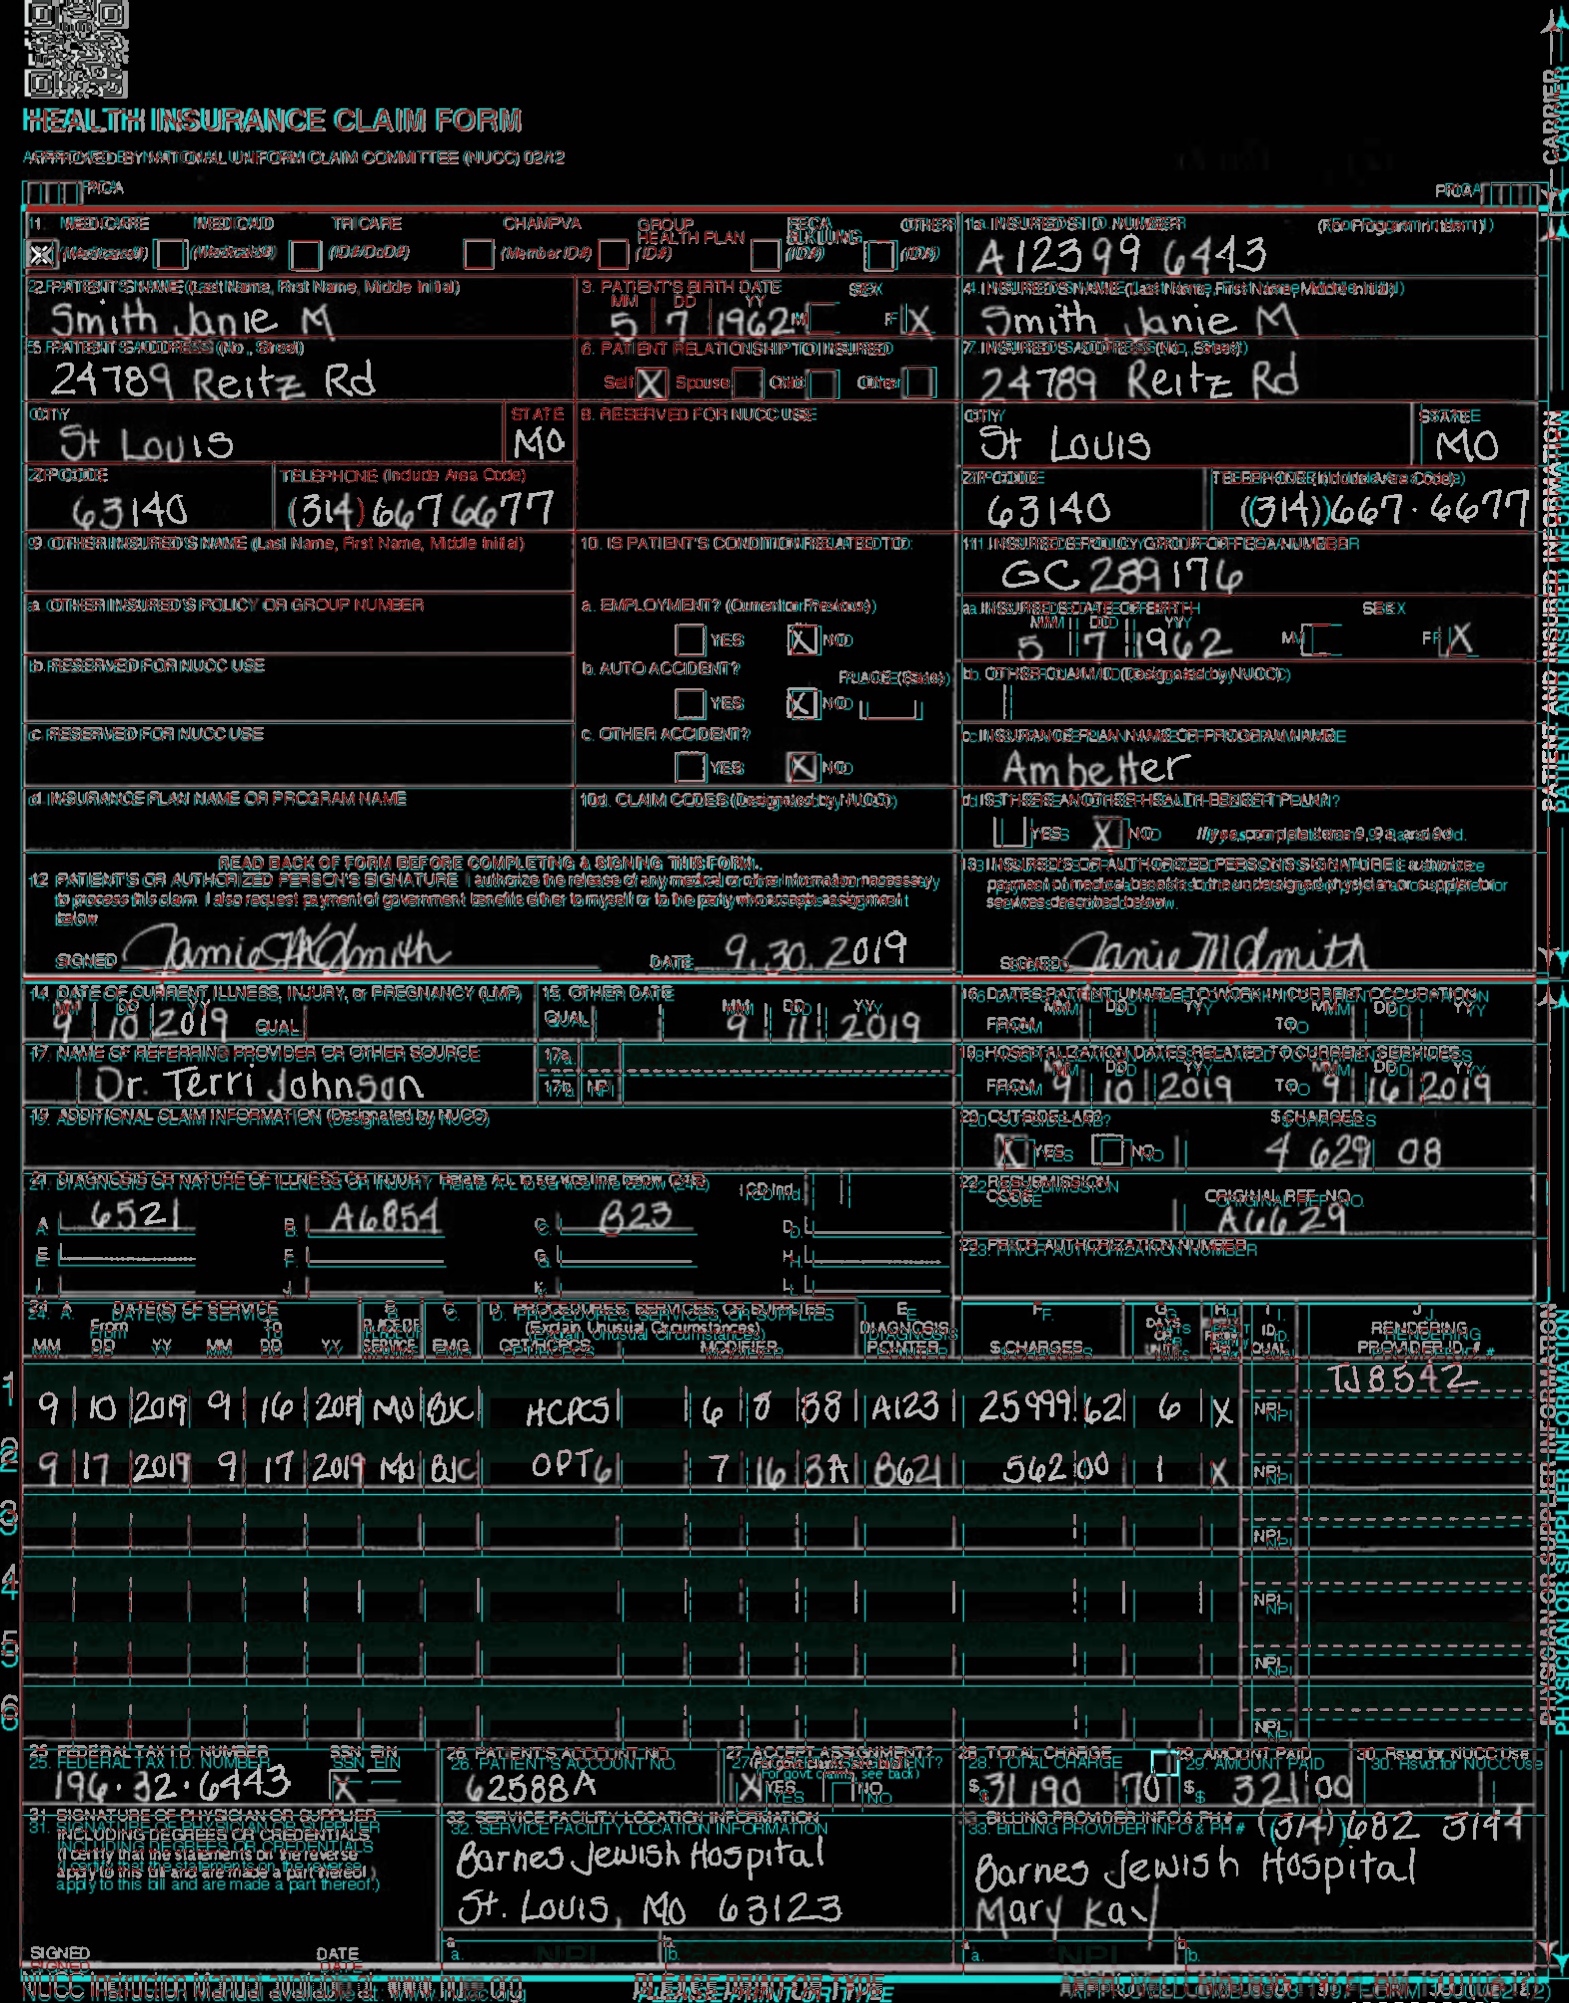 HEALTH INSURANCE CLAIM FORM
APPROVED BY NATIONAL UNIFORM CLAIM COMMITTEE (NUCC) 02/12
PICA PICA
CARRIER
1. MEDICARE MEDICAID TRICARE CHAMPVA GROUP HEALTH PLAN FECA BLK LUNG OTHER
(Medicare#) (Medicaid#) (ID#/DoD#) (Member ID#) (ID#) (ID#) (ID#)
1a. INSURED'S I.D. NUMBER (For Program in Item 1)
A12399 6443
2. PATIENT'S NAME (Last Name, First Name, Middle Initial)
Smith Janie M
3. PATIENT'S BIRTH DATE SEX
MM DD YY
5 7 1962 M F X
4. INSURED'S NAME (Last Name, First Name, Middle Initial)
Smith Janie M
5. PATIENT'S ADDRESS (No., Street)
24789 Reitz Rd
6. PATIENT RELATIONSHIP TO INSURED
Self X Spouse Child Other
7. INSURED'S ADDRESS (No., Street)
24789 Reitz Rd
CITY STATE
St Louis MO
8. RESERVED FOR NUCC USE
CITY STATE
St Louis MO
ZIP CODE TELEPHONE (Include Area Code)
63140 (314) 667 6677
ZIP CODE TELEPHONE (Include Area Code)
63140 (314) 667.6677
9. OTHER INSURED'S NAME (Last Name, First Name, Middle Initial)
10. IS PATIENT'S CONDITION RELATED TO:
11. INSURED'S POLICY GROUP OR FECA NUMBER
GC 289176
a. OTHER INSURED'S POLICY OR GROUP NUMBER
a. EMPLOYMENT? (Current or Previous)
YES X NO
a. INSURED'S DATE OF BIRTH SEX
MM DD YY
5 7 1962 M F X
b. RESERVED FOR NUCC USE
b. AUTO ACCIDENT? PLACE (State)
YES X NO
b. OTHER CLAIM ID (Designated by NUCC)
c. RESERVED FOR NUCC USE
c. OTHER ACCIDENT?
YES X NO
c. INSURANCE PLAN NAME OR PROGRAM NAME
Ambetter
d. INSURANCE PLAN NAME OR PROGRAM NAME
10d. CLAIM CODES (Designated by NUCC)
d. IS THERE ANOTHER HEALTH BENEFIT PLAN?
YES X NO If yes, complete items 9, 9a, and 9d.
PATIENT AND INSURED INFORMATION
READ BACK OF FORM BEFORE COMPLETING & SIGNING THIS FORM.
12. PATIENT'S OR AUTHORIZED PERSON'S SIGNATURE I authorize the release of any medical or other information necessary
to process this claim. I also request payment of government benefits either to myself or to the party who accepts assignment
below.
SIGNED Janie M Smith DATE 9.30.2019
13. INSURED'S OR AUTHORIZED PERSON'S SIGNATURE I authorize
payment of medical benefits to the undersigned physician or supplier for
services described below.
SIGNED Janie M Smith
14. DATE OF CURRENT ILLNESS, INJURY, or PREGNANCY (LMP)
MM DD YY
9 10 2019 QUAL.
15. OTHER DATE
QUAL. MM DD YY
9 11 2019
16. DATES PATIENT UNABLE TO WORK IN CURRENT OCCUPATION
MM DD YY MM DD YY
FROM TO
17. NAME OF REFERRING PROVIDER OR OTHER SOURCE
Dr. Terri Johnson
17a.
17b. NPI
18. HOSPITALIZATION DATES RELATED TO CURRENT SERVICES
MM DD YY MM DD YY
FROM 9 10 2019 TO 9 16 2019
19. ADDITIONAL CLAIM INFORMATION (Designated by NUCC)
20. OUTSIDE LAB? $ CHARGES
X YES NO 4 629 08
21. DIAGNOSIS OR NATURE OF ILLNESS OR INJURY Relate A-L to service line below (24E) ICD Ind.
A. 6521 B. A6854 C. B23 D.
E. F. G. H.
I. J. K. L.
22. RESUBMISSION CODE ORIGINAL REF. NO.
A6629
23. PRIOR AUTHORIZATION NUMBER
24. A. DATE(S) OF SERVICE B. C. D. PROCEDURES, SERVICES, OR SUPPLIES E. F. G. H. I. J.
From To PLACE OF SERVICE EMG (Explain Unusual Circumstances) DIAGNOSIS POINTER DAYS OR UNITS ID. QUAL. RENDERING PROVIDER ID. #
MM DD YY MM DD YY CPT/HCPCS MODIFIER $ CHARGES
TJ8542
1 9 10 2019 9 16 2019 MO BJC HCPCS 6 8 38 A123 25999 62 6 X NPI
2 9 17 2019 9 17 2019 MO BJC OPT6 7 16 3A B621 562 00 1 X NPI
3 NPI
4 NPI
5 NPI
6 NPI
PHYSICIAN OR SUPPLIER INFORMATION
25. FEDERAL TAX I.D. NUMBER SSN EIN
196.32.6443 X
26. PATIENT'S ACCOUNT NO.
62588A
27. ACCEPT ASSIGNMENT?
(For govt. claims, see back)
X YES NO
28. TOTAL CHARGE
$ 31190 70
29. AMOUNT PAID
$ 321 00
30. Rsvd for NUCC Use
31. SIGNATURE OF PHYSICIAN OR SUPPLIER
INCLUDING DEGREES OR CREDENTIALS
(I certify that the statements on the reverse
apply to this bill and are made a part thereof.)
SIGNED DATE
32. SERVICE FACILITY LOCATION INFORMATION
Barnes Jewish Hospital
St. Louis, Mo 63123
a. NPI b.
33. BILLING PROVIDER INFO & PH # (314) 682 3144
Barnes Jewish Hospital
Mary Kay
a. NPI b.
NUCC Instruction Manual available at: www.nucc.org
PLEASE PRINT OR TYPE